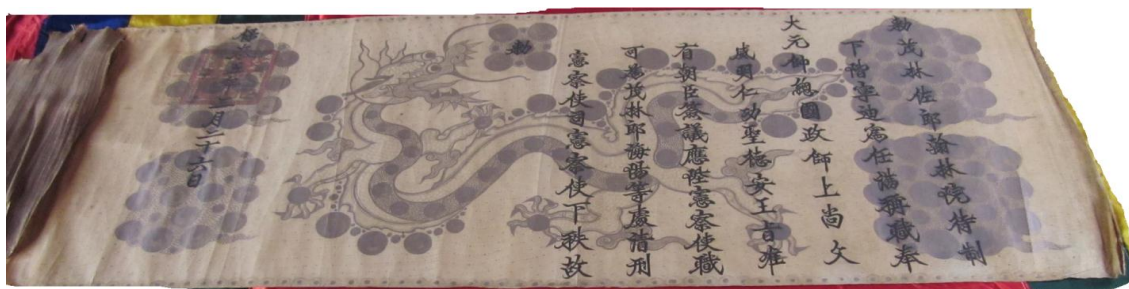 勅茂林佐郎翰林院待制
下階寧迪憲任滿稱職奉
大元帥總國政師上尚父
威明仁功聖德安王旨准
有朝臣僉議應陞憲察使職
可為茂林郎海陽等處清刑
憲察使司憲察使下秩故
勅
月二十六日